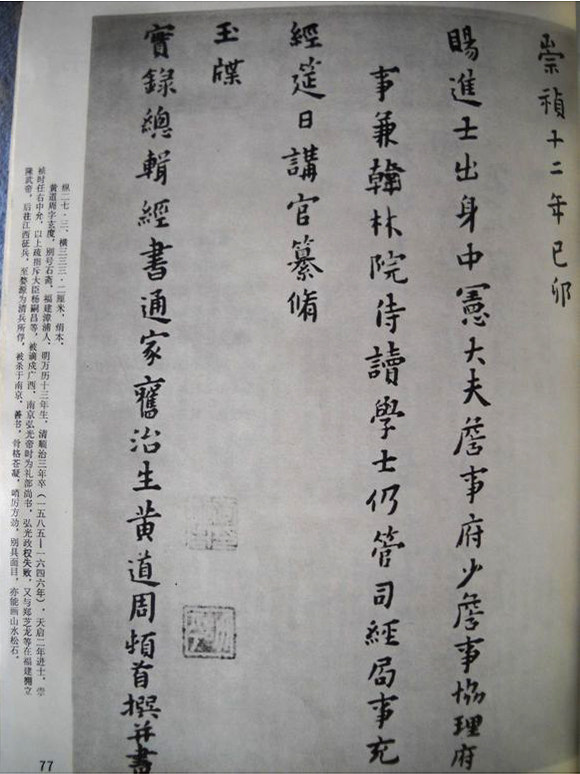 崇禎十二年己卯
賜進士出身中憲大夫詹事府少詹事協理府
事兼翰林院侍讀學士仍管司經局事充
經筵日講官纂脩
玉牒
實錄總輯經書通家舊治生黄道周頓首撰并書
纵二七·三、横三三三·二厘米，绢本。
黄道周字玄度，别号石斋，福建漳浦人，明万历十三年生，清顺治三年卒（一五八五—一六四六年）。天启二年进士，崇
祯时任右中允，以上疏指斥大臣杨嗣昌等，被谪戍广西，南京弘光帝时为礼部尚书，弘光政权失败，又与郑芝龙等在福建拥立
隆武帝，后往江西征兵，至婺源为清兵所俘，被杀于南京。善书，骨格苍凝，峭厉方劲，别具面目，亦能画山水松石。
77